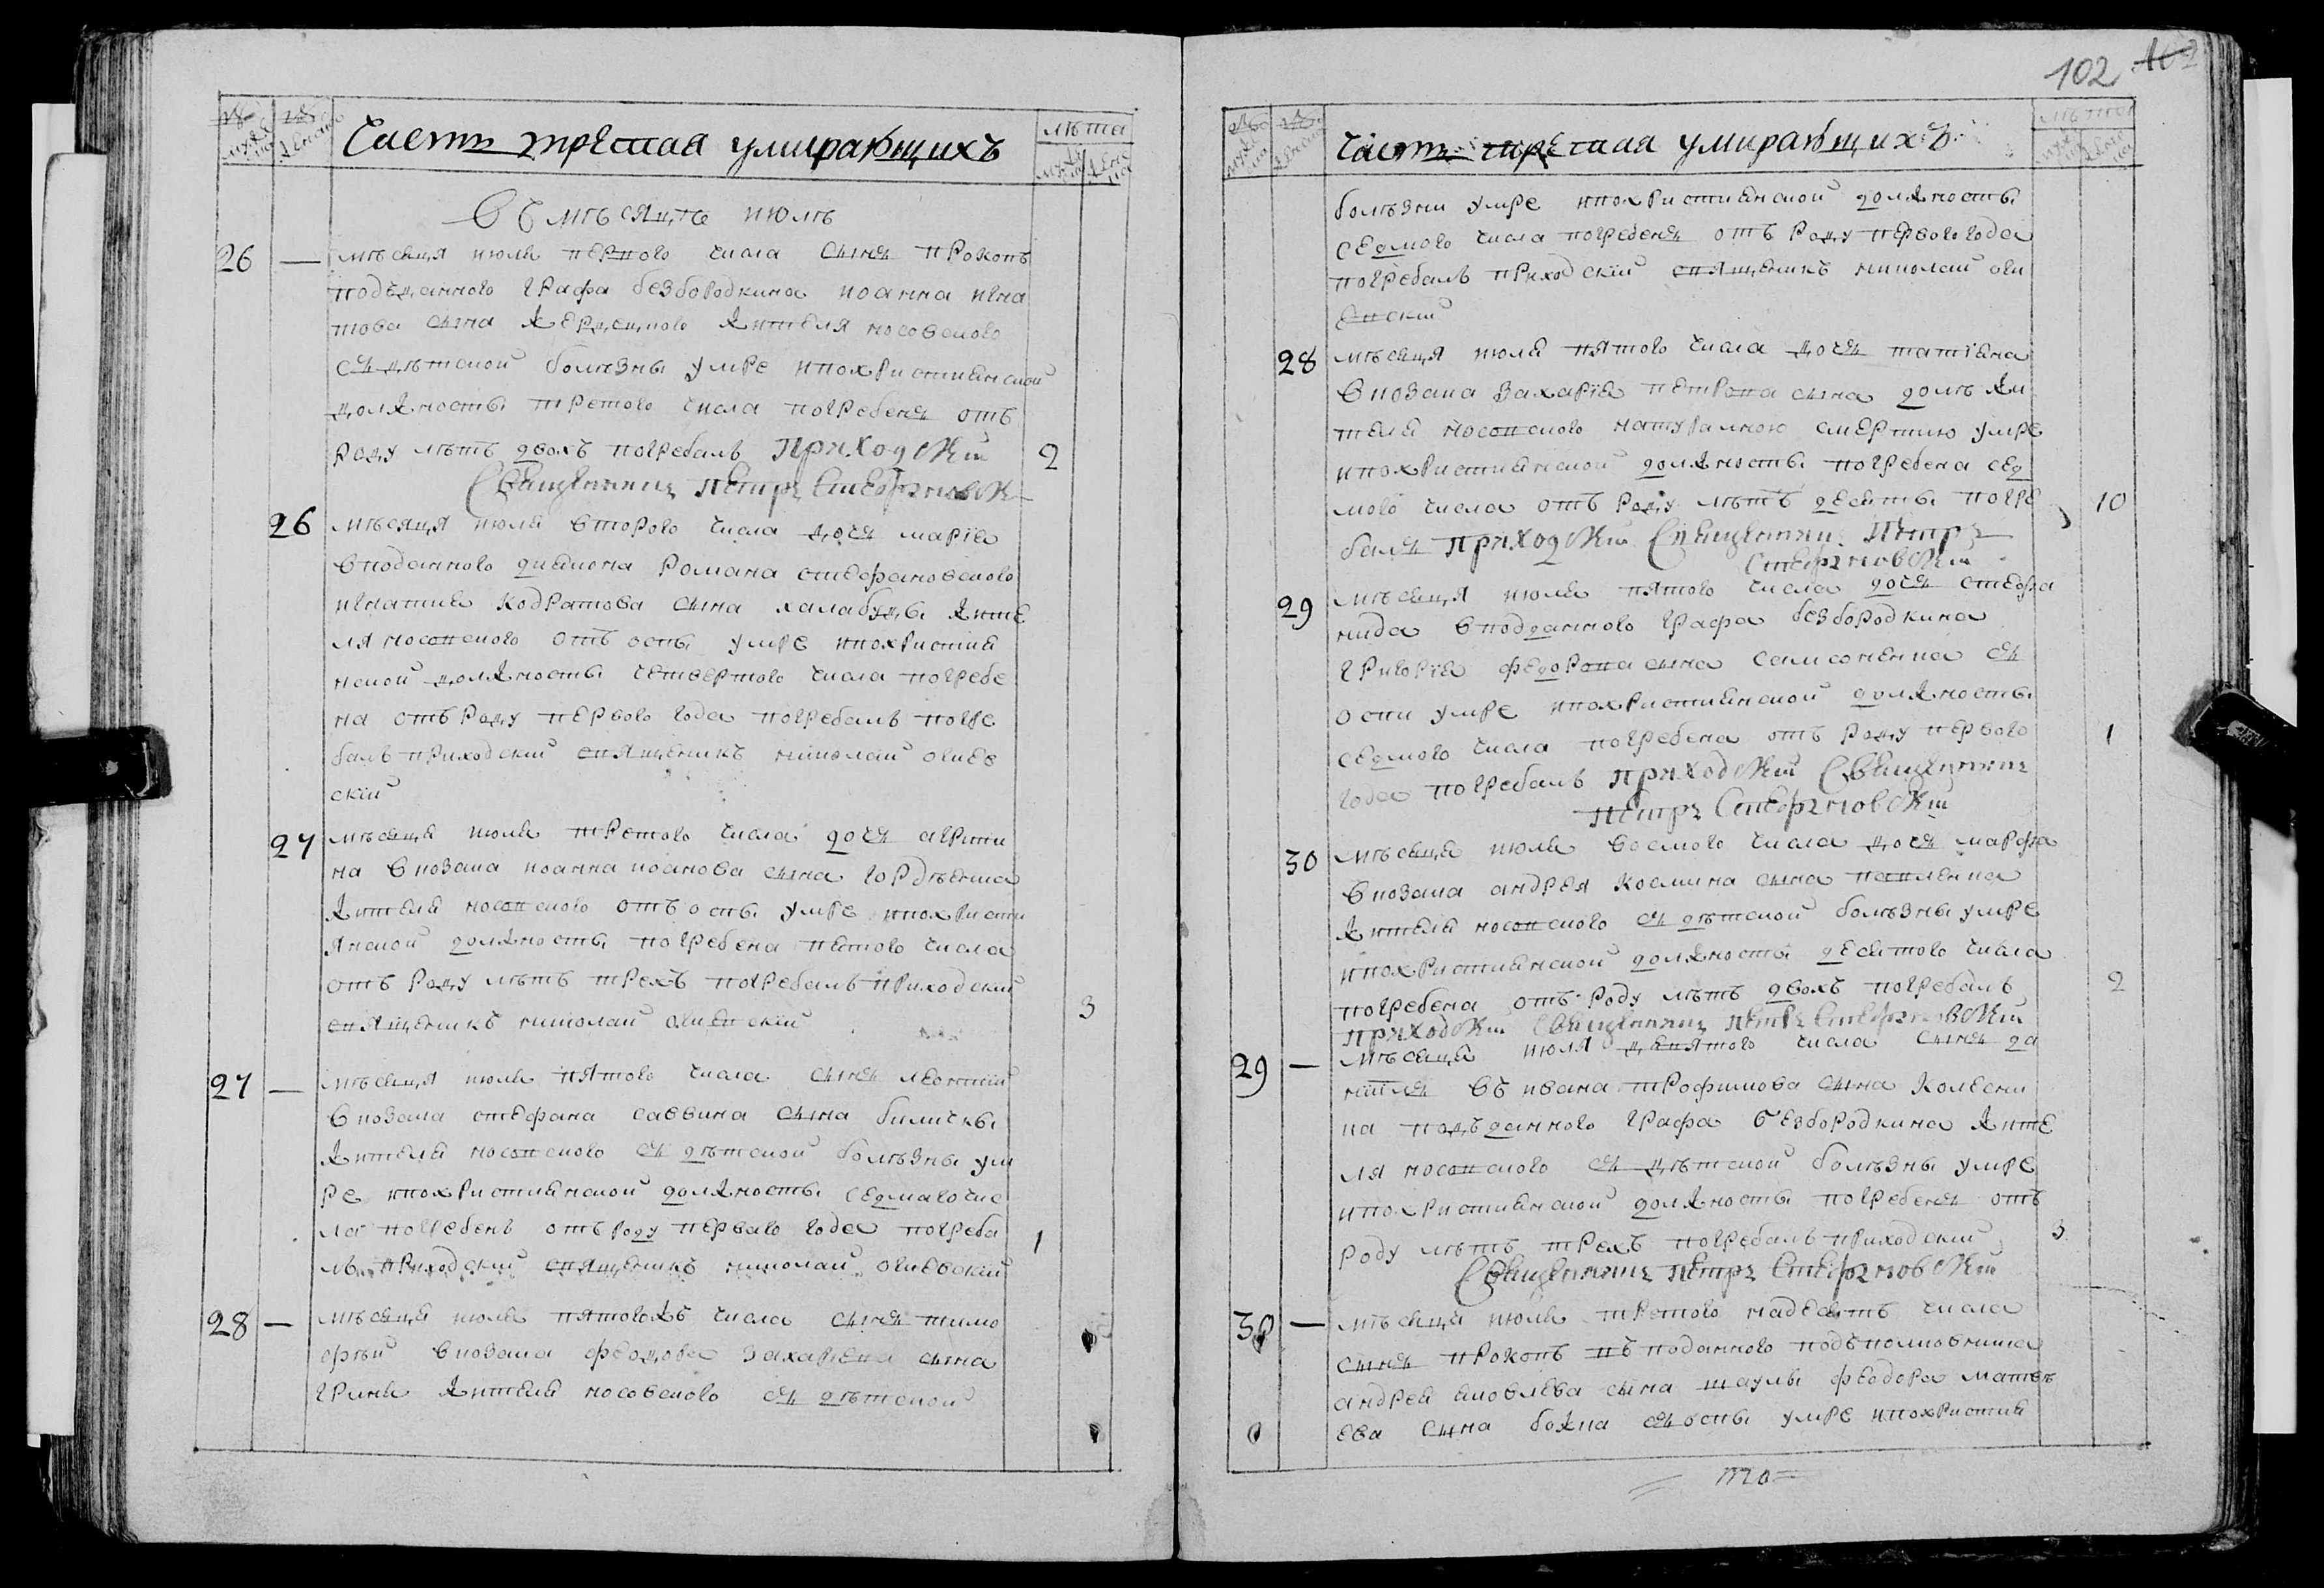 № мужеска
№ женска
Часть третая умирающихъ
лѣта
мужеска
женска
Въ мѣсяцѣ июлѣ
26 — мѣсяця июля первого числа сынъ прокопъ
подъданного графа безбородкина иоанна игна
това сына жителя носовского
съ дѣтской болѣзны умре ипохристиянской
должносты третого числа погребенъ отъ
роду лѣтъ двохъ погребалъ приходскій 2
Священникъ петръ Стефановскій
26 мѣсяця июля второго числа дочъ марія
вподанного диякона романа стефановского
игнатия кодратова сына халабуды жите
ля носовского отъ оспы умре ипохристия
нской должносты четвертого числа погребе
на отъ роду первого года погребалъ погре
балъ приходский священикъ николай огиев
скій
27 мѣсяця июля третого числа дочъ агрипи
на вкозака иоанна иоанова сына гордѣенка
жителя носовского отъ оспы умре ипохристи
янской должносты погребена пятого числа
отъ роду лѣтъ трехъ погребалъ приходский
священикъ николай огиевский 3
27 — мѣсяця июля пятого числа сынъ леонтий
вкозака стефана саввина сына билички
жителя носовского съ дѣтской болѣзны ум
ре ипохристиянской должносты седмаго чис
ла погребенъ отъ роду первато года погреба 1
лъ приходский священикъ николай огиевский
28 — мѣсяця июля пятогожъ числа сынъ тимо
фтий вкозака феодора захариева сына
гриня жителя носовского съ дѣтской
102
№ мужеска
№ женска
Часть третая умирающихъ
лѣта
мужеска
женска
болѣзни умре ипохристиянской должносты
седмого числа погребенъ отъ роду первого года
погребалъ приходскій священикъ николай оги
евский
28 мѣсяця июля пятого числа дочъ татіяна
вкозака захарія петрова сына долѣ жи
теля носовского натуралною смертию умре
ипохристиянской должносты погребена сед
мого числа отъ роду лѣтъ десяты погре 10
балъ приходскій Священникъ Петръ
Стефановскій
29 мѣсяця июля пятого числа дочъ стефа
нида вподданного графа безбородкина
григорія федорова сына самсоненка съ
оспи умре ипохристиянской должносты
седмого числа погребена отъ роду первого 1
года погребалъ приходскій Священникъ
петръ Стефановскій
30 мѣсяця июля восмого числа дочъ марфа
вкозака андрея космина сына павленка
жителя носовского съ дѣтской болѣзны умре
ипохристиянской должносты десятого числа
погребена отъ роду лѣтъ двохъ погребалъ 2
приходскій Священникъ петръ Стефановскій
29 — мѣсяця июля девятого числа сынъ да
ниилъ въ ивана трофимова сына колесни
ка подъданного графа безбородкина жите
ля носовского съ дѣтской болѣзны умре
ипохристиянской должносты погребенъ отъ
роду лѣтъ трехъ погребалъ приходский 3
Священникъ петръ Стефановскій
30 — мѣсяця июля третого надесять числа
сынъ прокопъ въ поданного подъполковника
андрея яковлева сына шаулы феодора матвѣ
ева сына божка съ оспы умре ипохристия